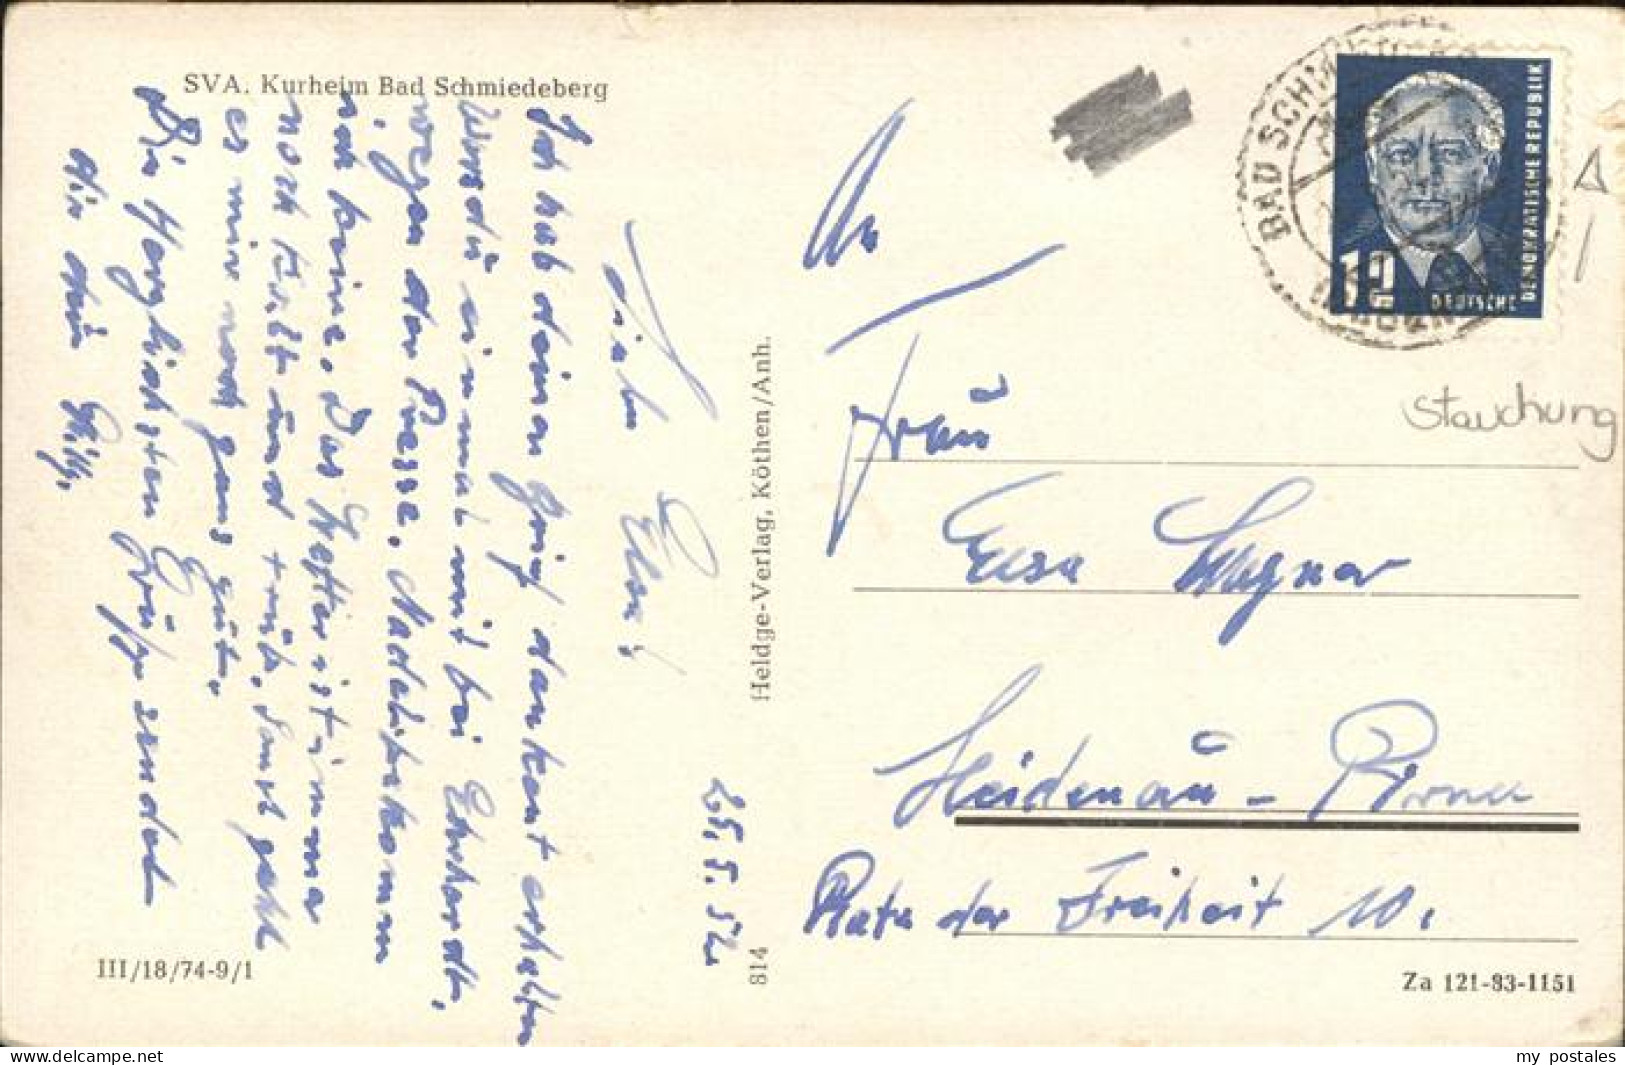 SVA. Kurheim Bad Schmiedeberg
25. 5. 52
Liebe Elsa!
Ich hab deinen Brief dankent erhalten
Warst du einmal mit bei Ehrhardt,
wegen der Presse. Nachricht bekomm
ich keine. Das Wetter ist immer
noch kalt und trüb. Sonst geht
es mir noch ganz gut.
Die Herzlichsten Grüße sendet
dir dein Willy.
III/18/74-9/1
Heldge-Verlag, Köthen/Anh.
814
BAD SCHMIEDEBERG
12
DEUTSCHE
DEMOKRATISCHE REPUBLIK
Stauchung
An
Frau
Elsa Wagner
Heidenau - Pirna
Platz der Freiheit 10.
Za 121-83-1151
my postales